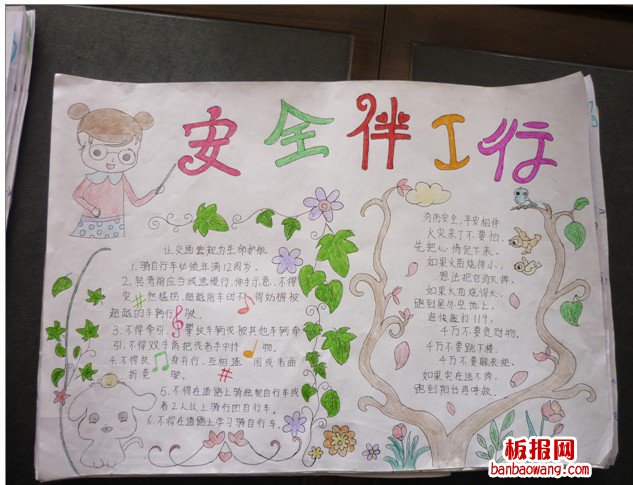 安全伴工行
让交通法规为生命护航
1.骑自行车必须年满12周岁。
2.转弯前应当减速慢行,伸手示意,不得
突然猛拐,超越前车时不得妨碍被
超越的车辆行驶。
3.不得牵引、攀扶车辆或被其他车辆牵
引,不得双手离把或者手中持物。
4.不得扶身并行、互相追逐或者曲
折竞驶。
5.不得在道路上骑独轮自行车或
者2人以上骑行的自行车。
6.不得在道路上学习骑自行车。
消防安全,平安相伴
火灾来了不要怕,
先把心情定下来。
如果火苗烧得小,
想法把它消灭掉。
如果火苗烧得大,
跑到屋外空地上。
赶快拨打119。
千万不要恋财物。
千万不要跳下楼,
千万不要躲衣橱。
如果实在逃不掉,
跑到阳台再呼救。
板报网
banbaowang.com